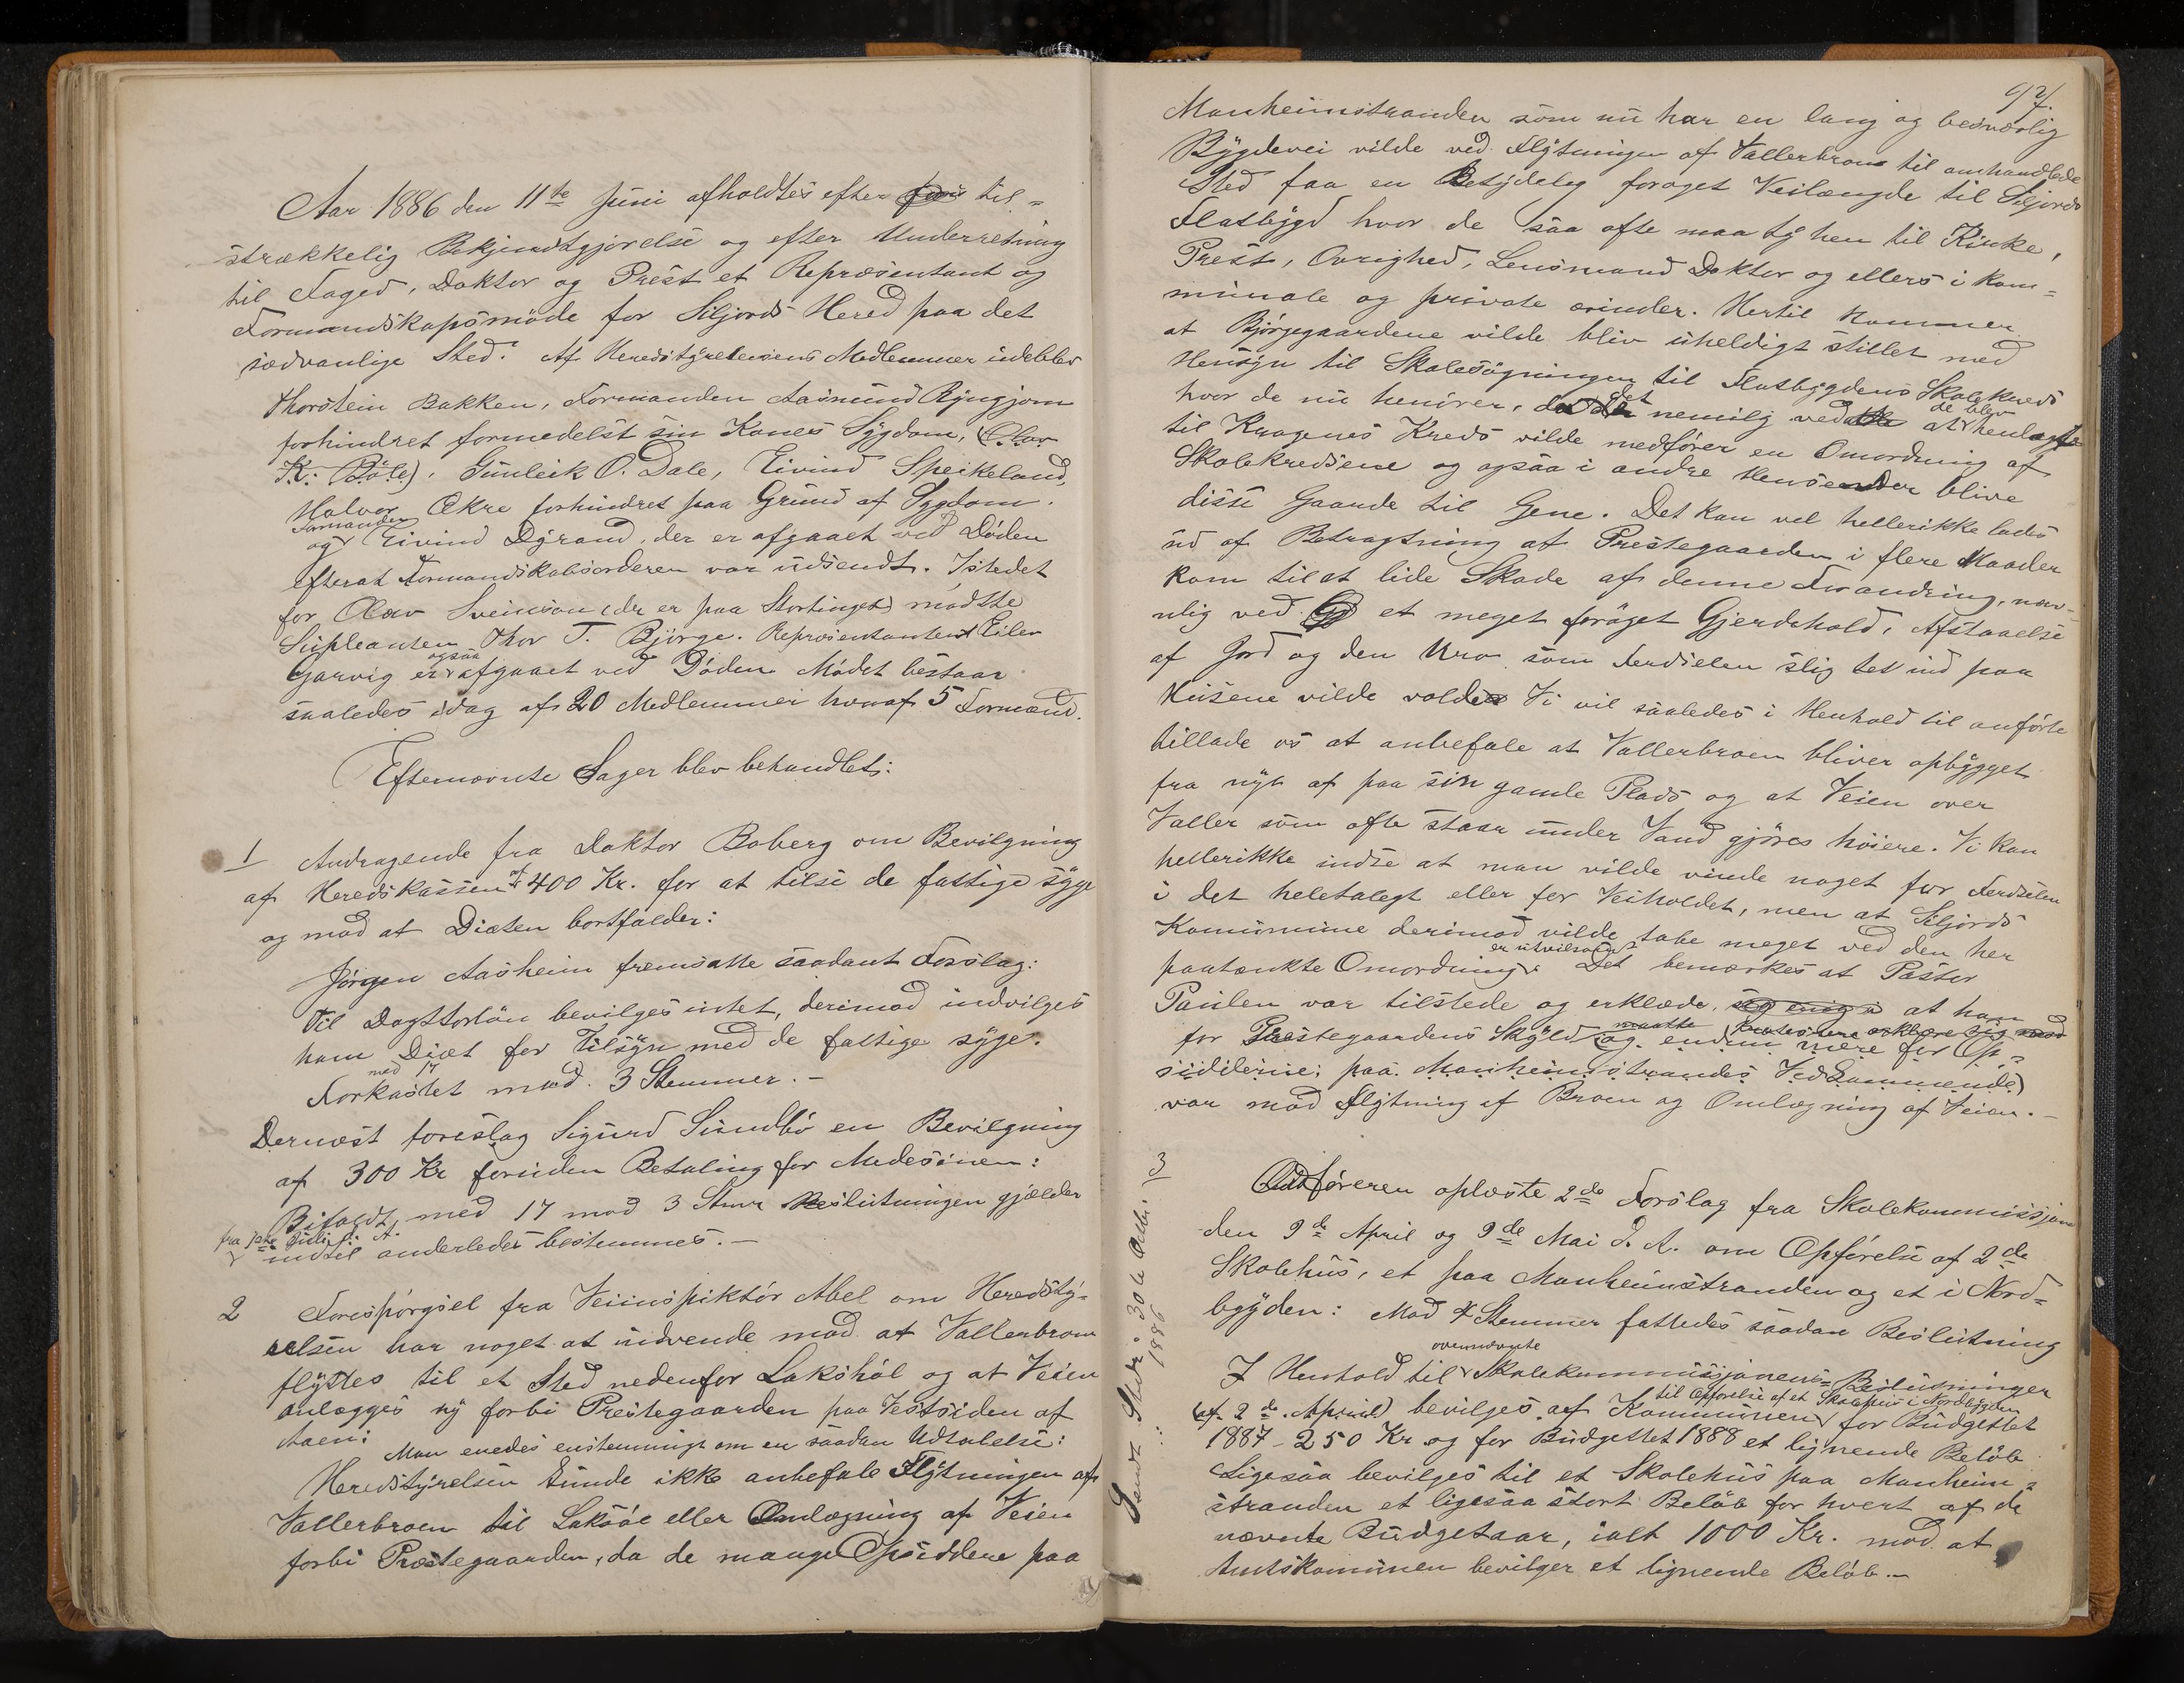 Aar 1886 den 11te Juni afholdtes efter til=
strækkelig Bekjendtgjørelse og efter Underretning
til Faged, Doktor og Prest et Repræsentant og
Formandskapsmøde for Siljords Hered paa det
sædvanlige Sted. Af Heredstyrelsens Medlemmer udeblev
Thorstein Bakken, Formanden Aasmund Ryngjom
forhindret formedelst sin Kones Sygdom, (Olav
K. Bøle), Gunleik O. Dale, Eivind Speikeland,
Halvor Økre forhindret paa Grund af Sygdom.
Formanden
og Eivind Dyrand, der er afgaaet ved Døden
efterat Formandskabsorderen var udsendt. Istedet
for Olav Sveinson (der er paa Stortinget) mødtte
Supleanten Thor T. Bjørge. Repræsentanten Eilev
ogsaa
Garvig er afgaaet ved Døden Mødet bestaar
saaledes idag af 20 Medlemmer hvoraf 5 Formænd.
Efternævnte Sager blev behandlet:
1 Andragende fra Doktor Boberg om Bevilgning
af Heredskassen af 400 Kr. for at tilse de fattige syge
og mod at Diæten bortfalder:
Jørgen Aasheim fremsatte saadant Forslag:
Til Dogttorløn bevilges intet, derimod indvilges
ham Diæt for Tilsyn med de fattige syge.
med 17
Forkastet mod 3 Stemmer. –
Dernæst foreslog Sigurd Sundbø en Bevilgning
af 300 Kr foruden Betaling for Medesinen:
Bifaldt, med 17 mod 3 Stmr Beslutningen gjælder
fra 1ste Juli d. A.
indtil anderledes bestemmes. –
2 Forespørgsel fra Veiinspiktør Abel om Heredsty=
relsen har noget at indvende mod at Vallerbroen
flyttes til et Sted nedenfor Lakshøl og at Veien
anlægges ny forbi Prestegaarden paa Vestsiden af
Aaen:
Man enedes enstemmigt om en saadan Udtalelse:
Heredstyrelsen kunde ikke anbefale Flytningen af
Vallerbroen til Laksøl eller Omlægning af Veien
forbi Præstegaarden, da de mange Opsiddere paa
97.
Manheimstranden som nu har en lang og besværlig
Bygdevei vilde ved Flytningen af Vallerbroen til omhandlede
Sted faa en Betydeleg forøget Veilængde til Siljords
Flatbygd hvor de saa ofte maa ty hen til Kirke,
Prest, Øvrighed, Lensmand Doktor og ellers i kom=
munale og private ærinder. Hertil kommer
at Bjørgegaardene vilde bliv uheldigt stillet med
Hensyn til Skolesøgningen til Flatbygdens Skolekreds
det de blev
hvor de nu henører, da nemilg ved at henlagte
til Kragenes Kreds vilde medfører en Omordning af
Skolekredsene og ogsaa i andre Henseender blive
disse Gaarde til Gene. Det kan vel hellerikke lades
ud af Betragtning at Prestegaarden i flere Maader
kom til at lide Skade af denne Forandring, nav=
nlig ved et meget forøget Gjerdehold, Afstaaelse
af Jord og den Uro som Ferdselen slig tet ind paa
Husene vilde volde Vi vil saaledes i Henhold til anførte
tillade os at anbefale at Vallerbroen bliver opbygget
fra nyt af paa sin gamle Plads og at Veien over
Valler som ofte staar under Vand gjøres høiere. Vi kan
hellerikke indse at man vilde vinde noget for Ferdselen
i det heletalegt eller for Veiholdet, men at Siljords
Kommune derimod vilde tabe meget ved den her
er utvilsomt
paatænkte Omordning. Det bemærkes at Pastor
Paulen var tilstede og erklæde, seg enig i at ham
maatte protestere erklære sig mod
for Præstegaardens Skyld og endnu mere for Op=
siddere paa Manheimstrandes Vedkommende)
var mod Flytning af Broen og Omlægning af Veien. –
3 Ordføreren oplæste 2de Forslag fra Skolekommissjonen
den 9de April og 9de Mai d. A. om Opførelse af 2de
Skolehus, et paa Manheimstranden og et i Nord=
bgyden: Mod 4 Stemmer fattedes saadan Beslutning
ovennævnte
I Henhold til Skolekommissjonens Beslutninger
til Opførelse af et Skolehus i Nordbygden
(af 2de April) bevilges af Kommunen for Budgettet
1887 – 250 Kr og for Budgettet 1888 et lignende Beløb
Ligesaa bevilges til et Skolehus paa Manheim=
stranden et ligesaa stort Beløb for hvert af de
nævnte Budgetaar, ialt 1000 Kr. mod at
Amtskomunen bevilger et lignende Beløb. –
Sendt Stedi 30te Okbr.
1886